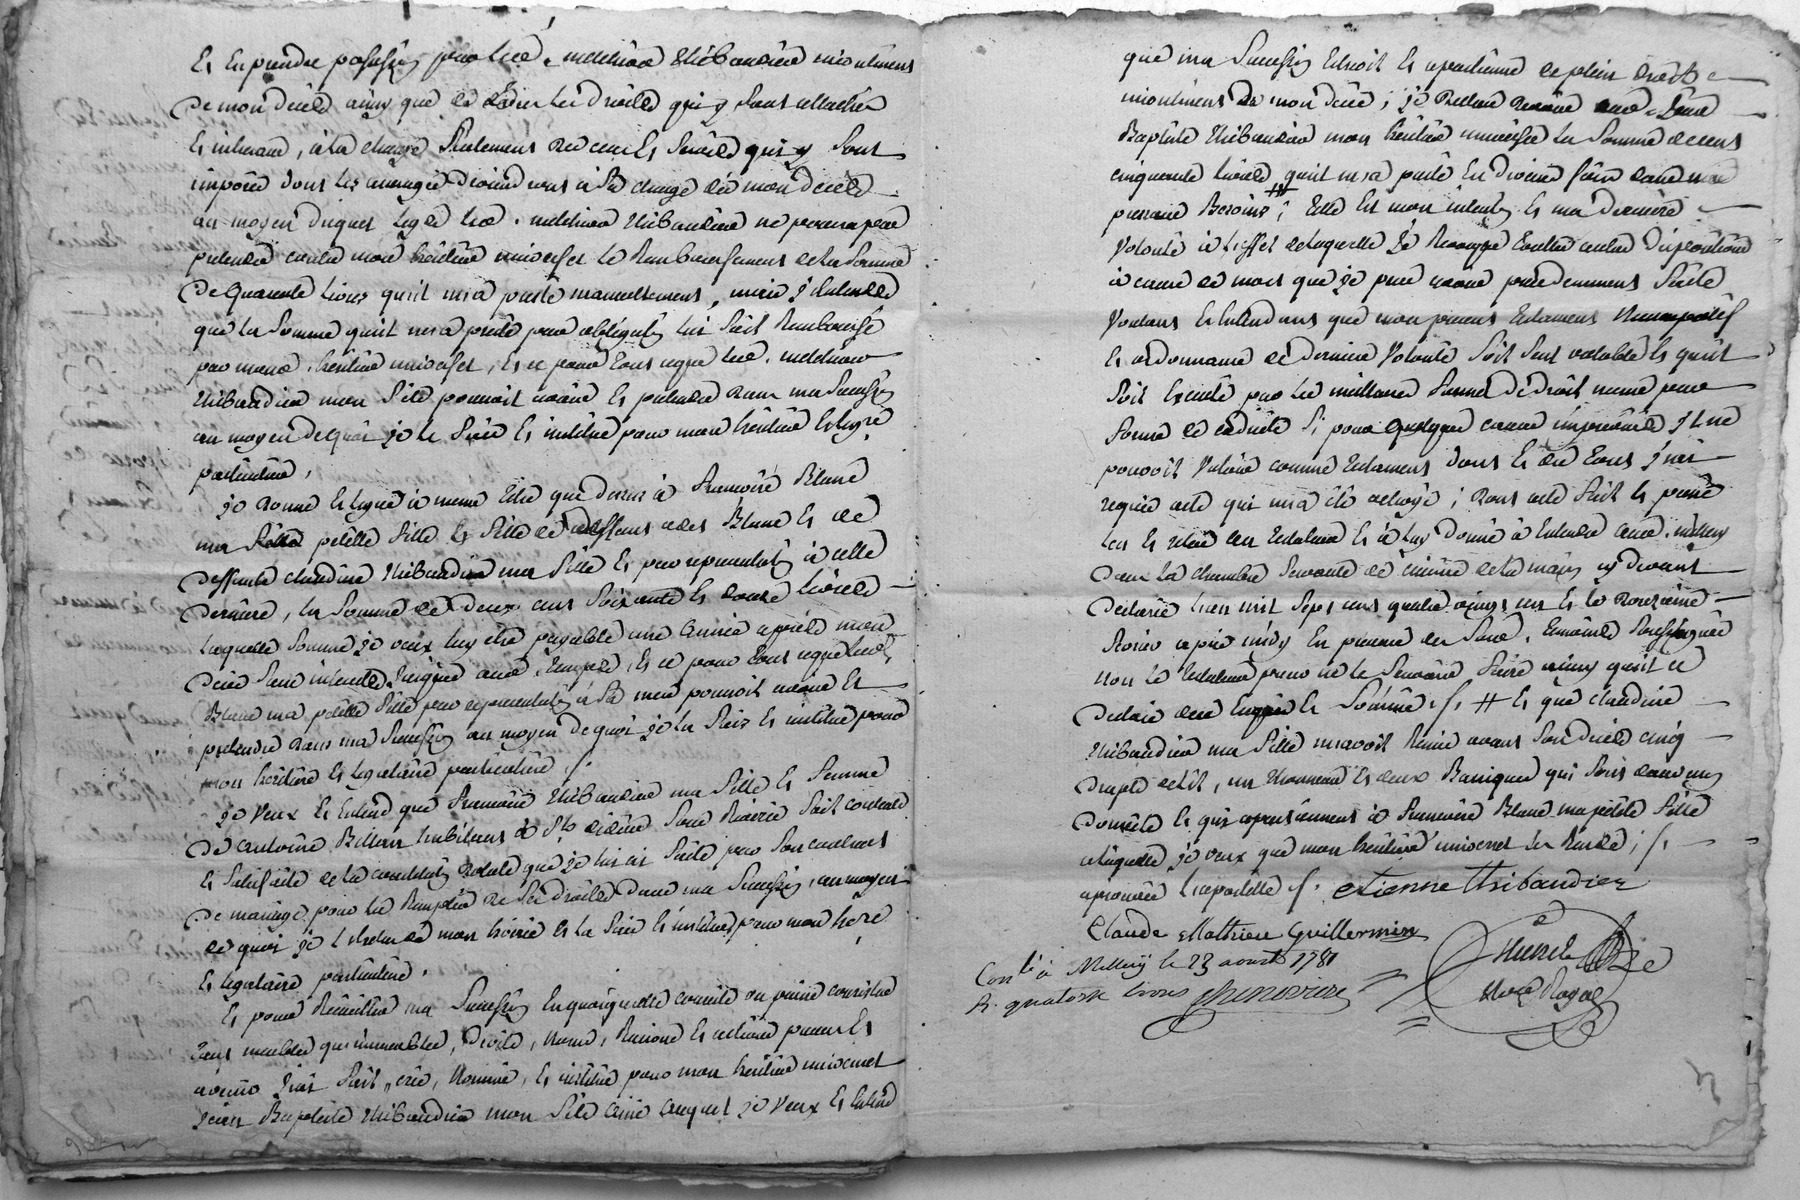 Et en prendre possession par led. melchior thibaudier incontinent
de mon decéd ainsy que de tous les droits qui y sont attachés
Et inherant, à la charge seulement des cens Et servis qui y sont
imposés dont les arrerages seront à sa charge dés mon decéd
au moyen duquel legs led. melchior thibaudier ne pourra pas
pretendre contre mon heritier universel le Remboursement de la somme
de quarante livres qu'il m'a preté manuellement, mais j'entends
que la somme qu'il m'a preté par obligation luy soit Remboursé
par mond. heritier universel, Et ce pour tous ceque led. melchior
thibaudier mon fils pourroit avoir Et pretendre dans ma succession
au moyen dequoi je le fais Et institue pour mon heritier Et legre
particulier,
je donne Et legue à meme titre que dessus à francoise Blanc
ma petitte fille Et fille de deffunt Blanc Et de
deffunte claudine thibaudier ma fille Et par representation à cette
derniere, la somme de deux cens soixante Et douze livres
laquelle somme je veux luy etre payable une année apprés mon
decés sans interets jusques aud. temps, Et ce pour tous ceque lad.
Blanc ma petitte fille par representation à sa mere pourroit avoir Et
pretendre dans ma succession au moyen dequoi je la fais Et institue pour
mon heritiere Et legataire particuliere ./.
je veux Et Entend que francoise thibaudier ma fille Et femme
de antoine Billon habitant à St didier sous Riverie soit contente
Et satisfaite de la constitution dotale que je lui ai faite par son contract
de mariage pour lui tenir lieu de ses droits dans ma succession, au moyen
de quoi je l'exclud de mon hoirie Et la fais Et institue pour mon here
Et legataire particuliere.
Et pour Recueillir ma succession En quoiquelle consiste ou puisse consister
tant meubles qu'immeubles, droits, noms, Raisons Et actions presents Et
avenir j'ai fait, crée, nommé, Et institué pour mon heritier universel
jean Baptiste thibaudier mon fils ainé auquel je veux Et Entend
que ma succession Echoit Et apartienne de plein droit
incontinent de mon decés; je declare devoir aud. jean
Baptiste thibaudier mon heritier universel la somme de cens
cinquante livres qu'il m'a preté En diverses fois dans mes
pressants Besoins #; telle Est mon intention Et ma derniere
volonté à l'effet de laquelle je Revoque toutes autres dispositions
à cause de mort que je puis avoir precedemment faites
voulant Et Entendant que mon present testament nuncupatif
Et ordonnance de derniere volonté soit seul valable Et qu'il
soit Executé par les meilleures formes de droit meme par
forme de codicille si pour quelques causes imprevues il ne
pouvoit valoir comme testament dont Et de tous j'ai
requis acte qui m'a été octroyé; dont acte fait Et passé
leu Et releu au testateur Et à luy donné à Entendre aud. millery
dans la chambre servante de cuisine de la maison y devant
declarée l'an mil sept cens quatre vingt un Et le douzieme
aoust après midy En presence des sieurs temoins soussignés
non le testateur pour ne le sçavoir faire ainsy qu'il a
declaré dece Enquis Et sommé ./. # Et que claudine
thibaudier ma fille m'avoit Remis avant son decés cinq
draps de lit, un tonneau Et deux Barriques qui sont dans mon
domicile Et qui apartiennent à francoise Blanc ma petite fille
à laquelle je veux que mon heritier universel les Rende; ./.
aprouvée l'apostille ./. etienne thibaudier
Claude Mathieu Guillermin
Conlé à Millery le 23 aoust 1781
R. quatorze livres
Nore Royal